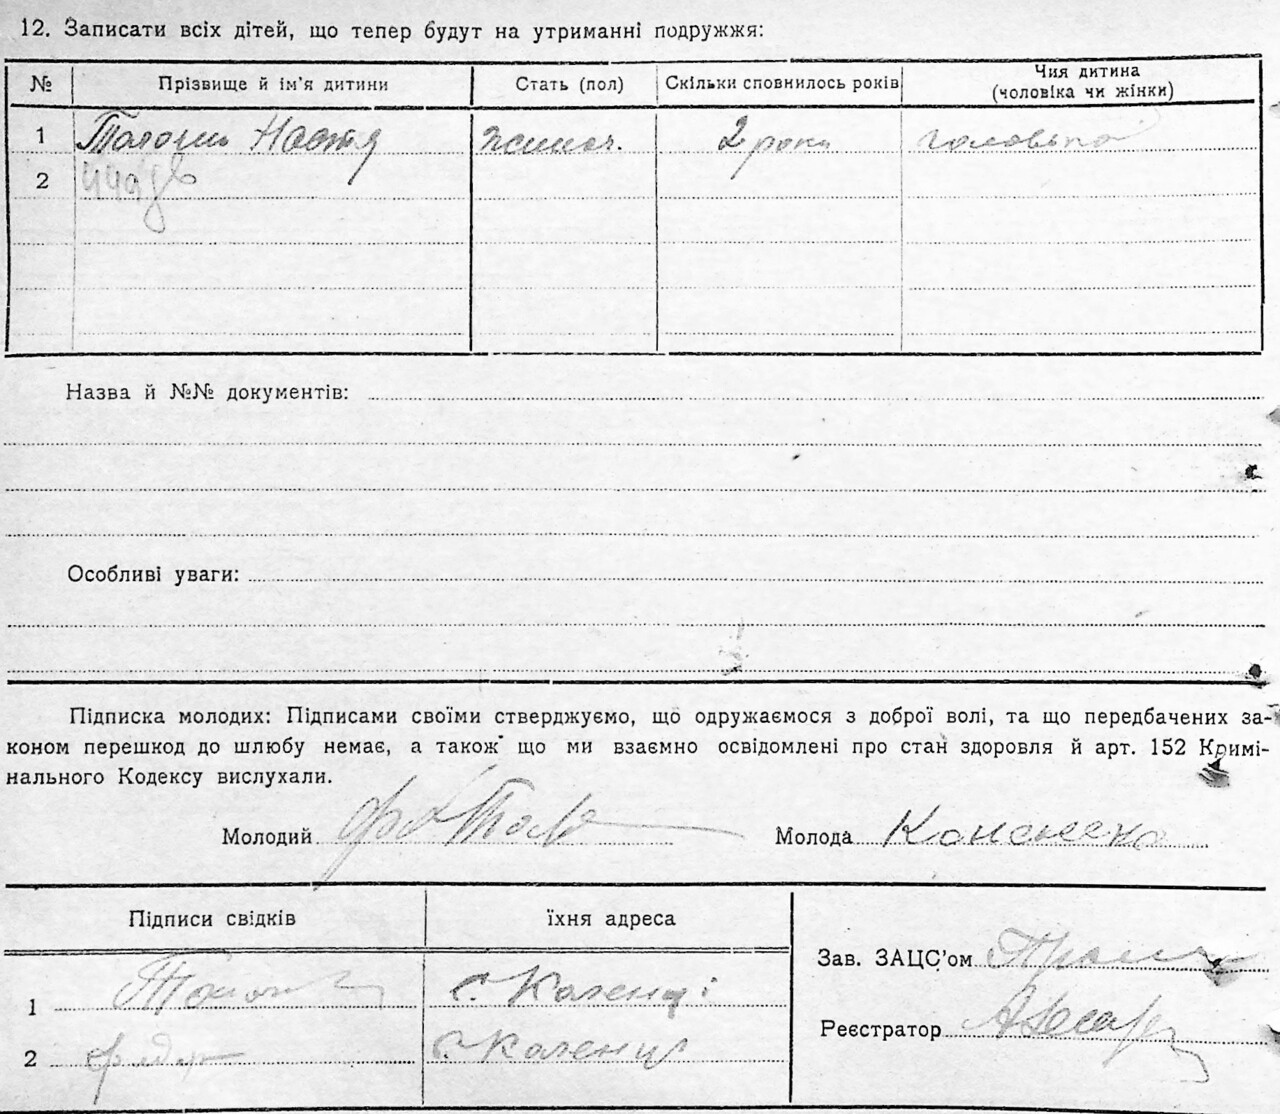 12. Записати всіх дітей, що тепер будут на утриманні подружжя:
№ Прізвище й ім'я дитини Стать (пол) Скільки сповнилось років Чия дитина
(чоловіка чи жінки)
1 Настя 2 роки
2
Назва й №№ документів:
Особливі уваги:
Підписка молодих: Підписами своїми стверджуємо, що одружаємося з доброї волі, та що передбачених за-
коном перешкод до шлюбу немає, а також що ми взаємно освідомлені про стан здоровля й арт. 152 Кримі-
нального Кодексу вислухали.
Молодий Молода
Підписи свідків їхня адреса
Зав. ЗАЦС'ом
1 с. Каленці
Реєстратор
2 с. Каленці